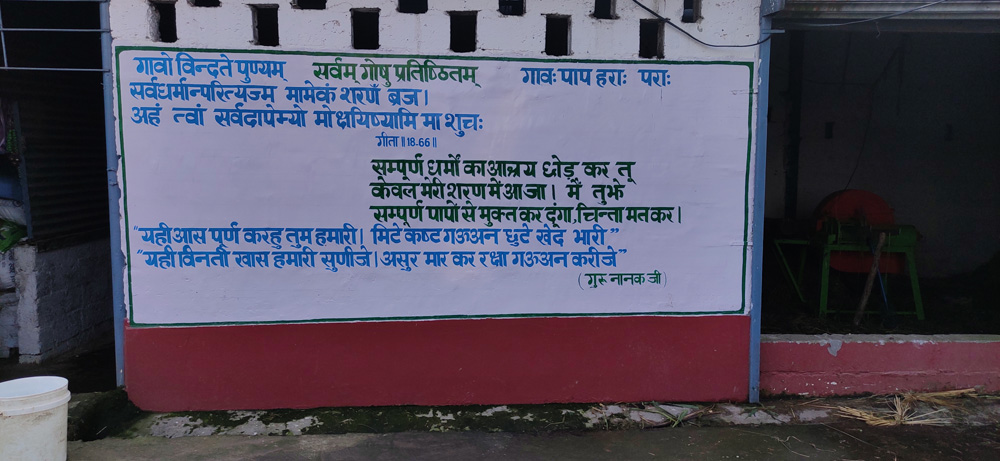 गावो विन्दते पुण्यम् सर्वम् गोषु प्रतिष्ठितम् गावः पाप हराः पराः
सर्वधर्मान्परित्यज्म मामेकं शरणँ ब्रज।
अहं त्वां सर्वदापेम्यो मोक्षयिष्यामि मा शुचः
गीता॥18:66॥
सम्पूर्ण धर्मों का आश्रय छोड़ कर तू
केवल मेरी शरण में आ जा। में तुझे
सम्पूर्ण पापों से मुक्त कर दूंगा, चिन्ता मत कर।
"यही आस पूर्ण करहु तुम हमारी। मिटे कष्ट गऊअन छुटे खेद भारी"
"यही विनती खास हमारी सुणीजे। असुर मार कर रक्षा गऊअन करीजे"
(गुरु नानक जी)